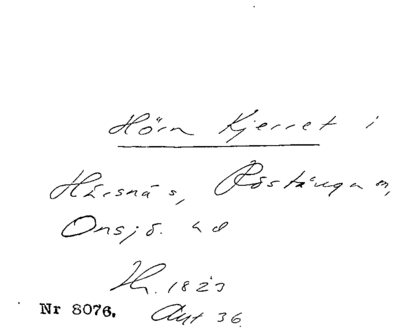 Hörn Kjerret i
Härsnäs, Röstånga sn,
Onsjö hd
Hr. 1823
Nr 8076. Aut 36.